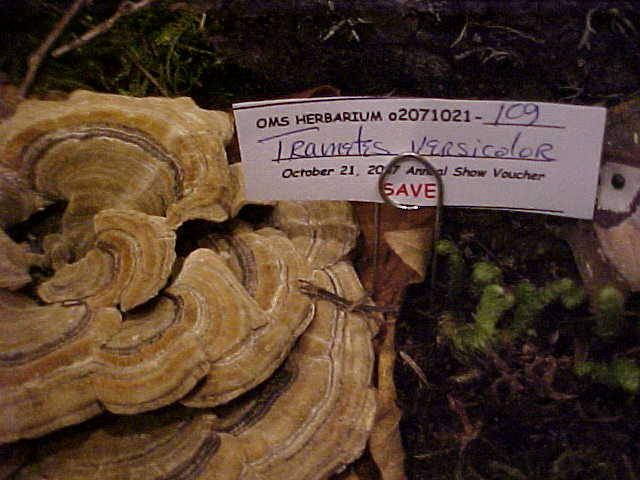 OMS HERBARIUM o2071021- 109
Trametes versicolor
October 21, 2007 Annual Show Voucher
SAVE